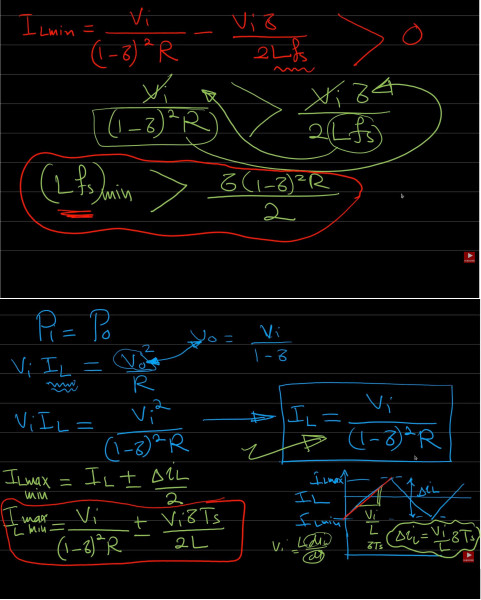 I_Lmin = Vi / (1-δ)²R - Viδ / 2Lfs > 0
Vi / (1-δ)²R > Viδ / 2Lfs
(Lfs)min > δ(1-δ)²R / 2
Pi = Po
Vi I_L = Vo² / R
Vo = Vi / 1-δ
Vi I_L = Vi² / (1-δ)²R
I_L = Vi / (1-δ)²R
I_Lmax min = I_L ± ΔiL / 2
I_L max min = Vi / (1-δ)²R ± ViδTs / 2L
I_Lmax
I_L
I_Lmin
ΔiL
Vi / L
δTs
Vi = L diL / dt
ΔiL = Vi / L δTs